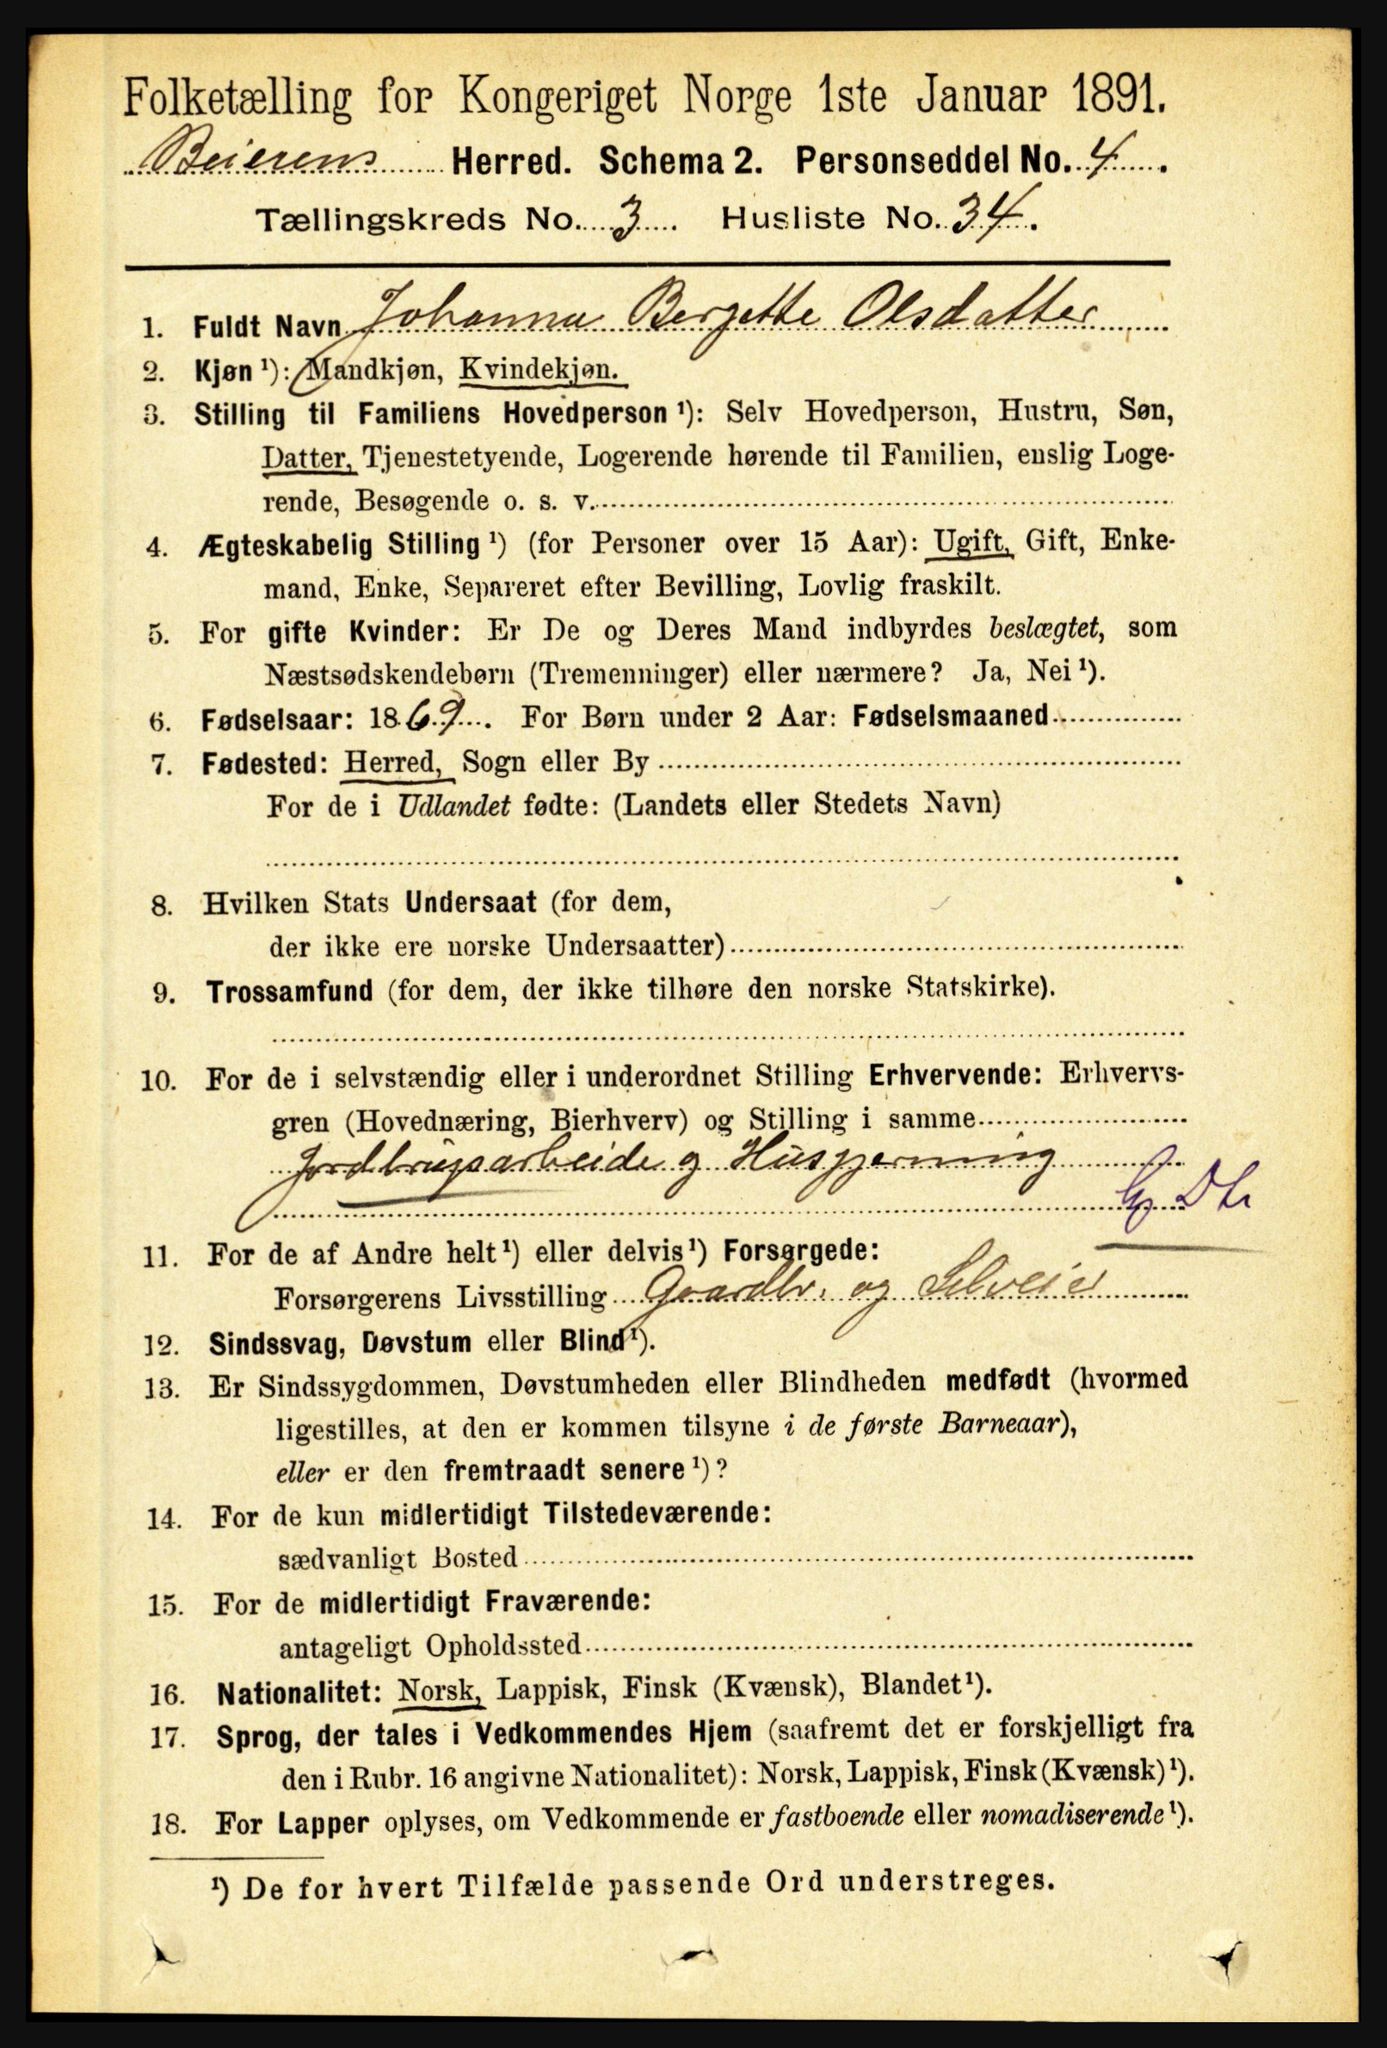 Folketælling for Kongeriget Norge 1ste Januar 1891.
Beierens Herred. Schema 2. Personseddel No. 4.
Tællingskreds No. 3. Husliste No. 34.
1. Fuldt Navn Johanna Bergette Olsdatter
2. Kjøn ¹): Mandkjøn, Kvindekjøn.
3. Stilling til Familiens Hovedperson ¹): Selv Hovedperson, Hustru, Søn,
Datter, Tjenestetyende, Logerende hørende til Familien, enslig Loge-
rende, Besøgende o. s. v.
4. Ægteskabelig Stilling ¹) (for Personer over 15 Aar): Ugift, Gift, Enke-
mand, Enke, Separeret efter Bevilling, Lovlig fraskilt.
5. For gifte Kvinder: Er De og Deres Mand indbyrdes beslægtet, som
Næstsødskendebørn (Tremenninger) eller nærmere? Ja, Nei ¹).
6. Fødselsaar: 1869. For Børn under 2 Aar: Fødselsmaaned
7. Fødested: Herred, Sogn eller By
For de i Udlandet fødte: (Landets eller Stedets Navn)
8. Hvilken Stats Undersaat (for dem,
der ikke ere norske Undersaatter)
9. Trossamfund (for dem, der ikke tilhøre den norske Statskirke).
10. For de i selvstændig eller i underordnet Stilling Erhvervende: Erhvervs-
gren (Hovednæring, Bierhverv) og Stilling i samme
Jordbrugsarbeide og Husgjerning
G Dtr
11. For de af Andre helt ¹) eller delvis ¹) Forsørgede:
Forsørgerens Livsstilling Gaardbr. og Selveier
12. Sindssvag, Døvstum eller Blind ¹).
13. Er Sindssygdommen, Døvstumheden eller Blindheden medfødt (hvormed
ligestilles, at den er kommen tilsyne i de første Barneaar),
eller er den fremtraadt senere ¹)?
14. For de kun midlertidigt Tilstedeværende:
sædvanligt Bosted
15. For de midlertidigt Fraværende:
antageligt Opholdssted
16. Nationalitet: Norsk, Lappisk, Finsk (Kvænsk), Blandet ¹).
17. Sprog, der tales i Vedkommendes Hjem (saafremt det er forskjelligt fra
den i Rubr. 16 angivne Nationalitet): Norsk, Lappisk, Finsk (Kvænsk) ¹).
18. For Lapper oplyses, om Vedkommende er fastboende eller nomadiserende ¹).
¹) De for hvert Tilfælde passende Ord understreges.